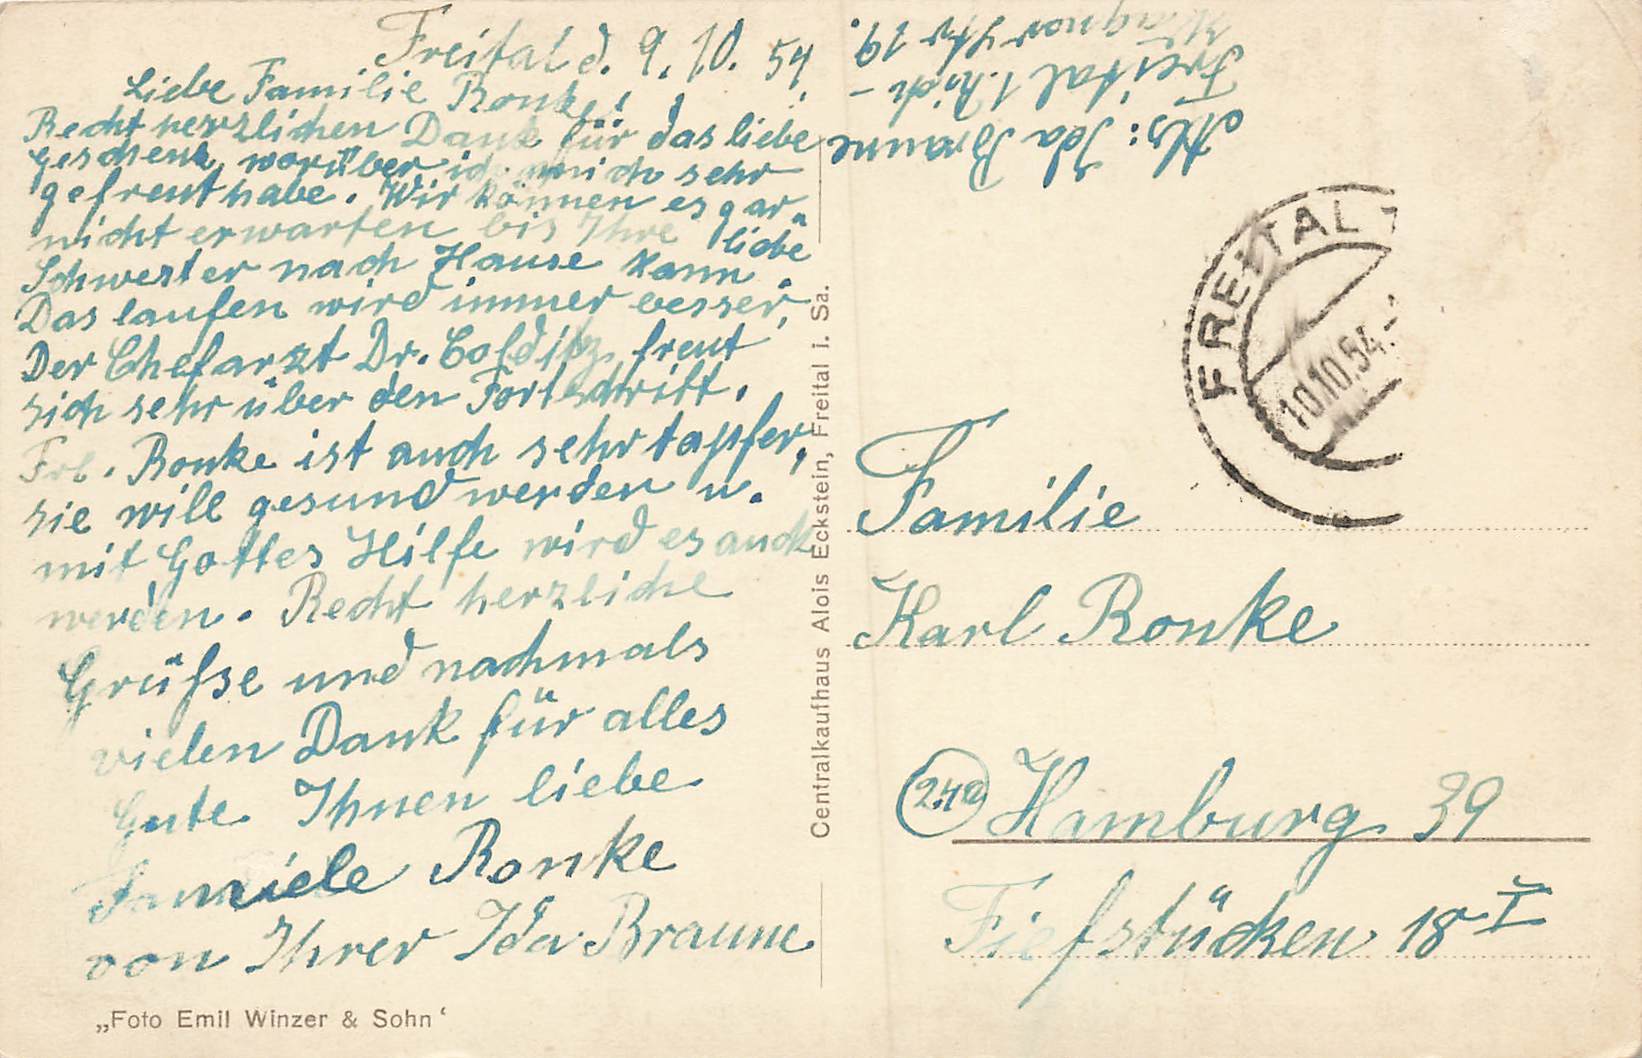 Freital d. 9.10.54
Liebe Familie Ronke!
Recht herzlichen Dank für das liebe
Geschenk, worüber ich mich sehr
gefreut habe. Wir können es gar
nicht erwarten bis Ihre liebe
Schwester nach Hause kann.
Das laufen wird immer besser,
Der Chefarzt Dr. Colditz freut
sich sehr über den Fortschritt.
Frl. Ronke ist auch sehr tapfer,
sie will gesund werden u.
mit Gottes Hilfe wird es auch
werden. Recht herzliche
Grüße und nachmals
vielen Dank für alles
Gute Ihnen liebe
Familie Ronke
von Ihrer Ida Braune
„Foto Emil Winzer & Sohn‘
Centralkaufhaus Alois Eckstein, Freital i. Sa.
Abs: Ida Braune
Freital 1.
Wagner Str 19.
FREITAL 1
10.10.54.-
Familie
Karl Ronke
24a Hamburg 39
Fiefstücken 18 I